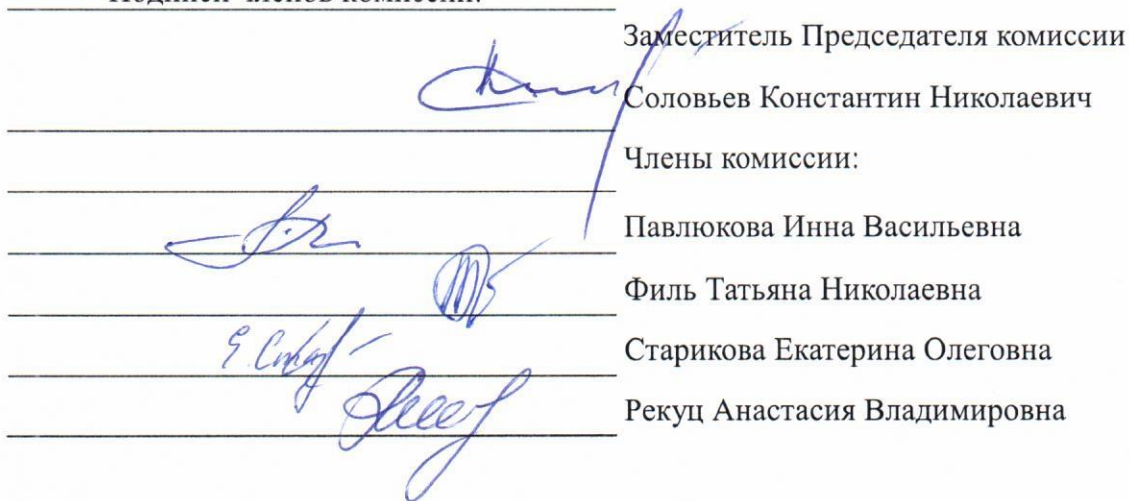 Подписи членов комиссии:
Заместитель Председателя комиссии
Соловьев Константин Николаевич
Члены комиссии:
Павлюкова Инна Васильевна
Филь Татьяна Николаевна
Старикова Екатерина Олеговна
Рекуц Анастасия Владимировна